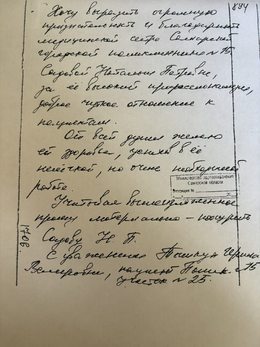 Хочу выразить огромную
признательность и благодарность
медицинской сестре Самарской
городской поликлиники № 15
Садовой Наталии Петровне,
за её высокий профессионализм,
доброе чуткое отношение к
пациентам.
От всей души желаю
ей здоровья, успехов в её
нелёгкой, но очень необходимой
работе.
Учитывая вышеизложенное
прошу материально поощрить
Садову Н. П.
С уважением Ирина
Валеровна, пациент № 15
участок № 25.
Министерство здравоохранения
Самарской области